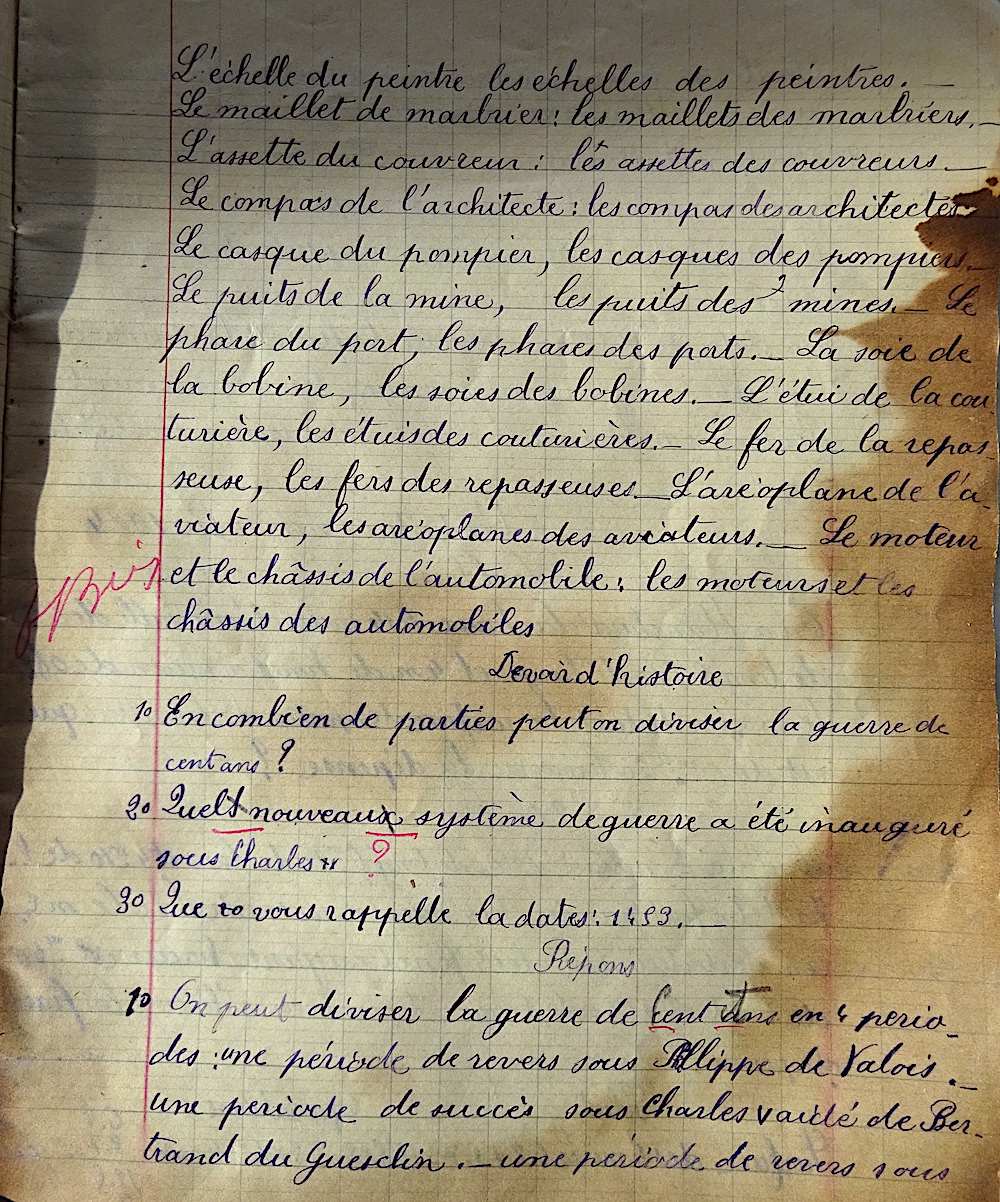 L'échelle du peintre les échelles des peintres. —
Le maillet de marbrier : les maillets des marbriers. —
L'assette du couvreur : lés assettes des couvreurs. —
Le compas de l'architecte : les compas des architectes
Le casque du pompier, les casques des pompiers. —
Le puits de la mine, les puits des mines. — Le
phare du port, les phares des ports. — La soie de
la bobine, les soies des bobines. — L'étui de la cou
turière, les étuis des couturières. — Le fer de la repas
seuse, les fers des repasseuses — L'aréoplane de l'a-
viateur, les aréoplanes des aviateurs. — Le moteur
Bis
et le châssis de l'automobile : les moteurs et les
châssis des automobiles
Devoir d'histoire
1o En combien de parties peut on diviser la guerre de
cent ans ?
2o Quels nouveaux système de guerre a été inauguré
sous Charles ?
3o Que vous rappelle la dates : 1453. —
Répons
1o On peut diviser la guerre de Cent ans en 4 perio_
des : une période de revers sous Phllippe de Valois. —
une periode de succès sous Charles V aidé de Ber-
trand du Guesclin. — une période de revers sous